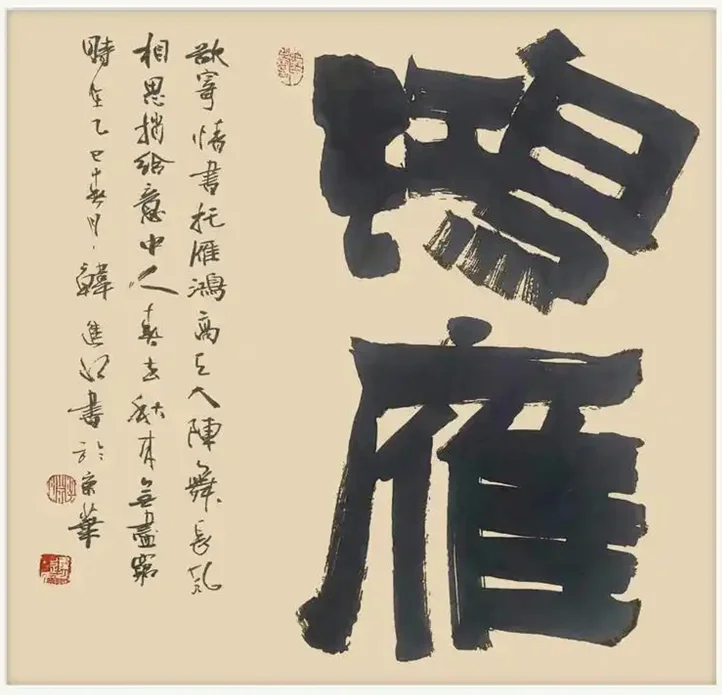 鴻雁
欲寄情書托雁鴻高人陣舞長風
相思捎給意中人春去秋來無盡窮
時在乙巳春月韓進書於京華